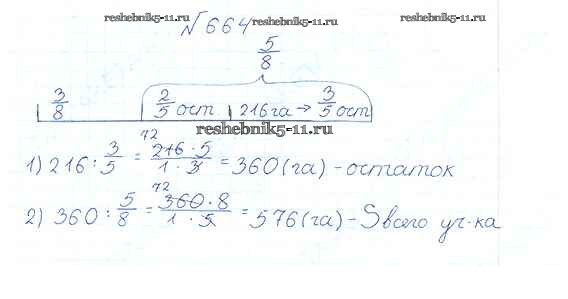 reshebnik5-11.ru reshebnik5-11.ru
№664
reshebnik5-11.ru
5/8
3/8 2/5 ост. 216га → 3/5 ост
reshebnik5-11.ru
1) 216 : 3/5 = 72 216 · 5 / 1 · 3 = 360 (га) - остаток
2) 360 : 5/8 = 72 360 · 8 / 1 · 5 = 576 (га) - S всего уч-ка